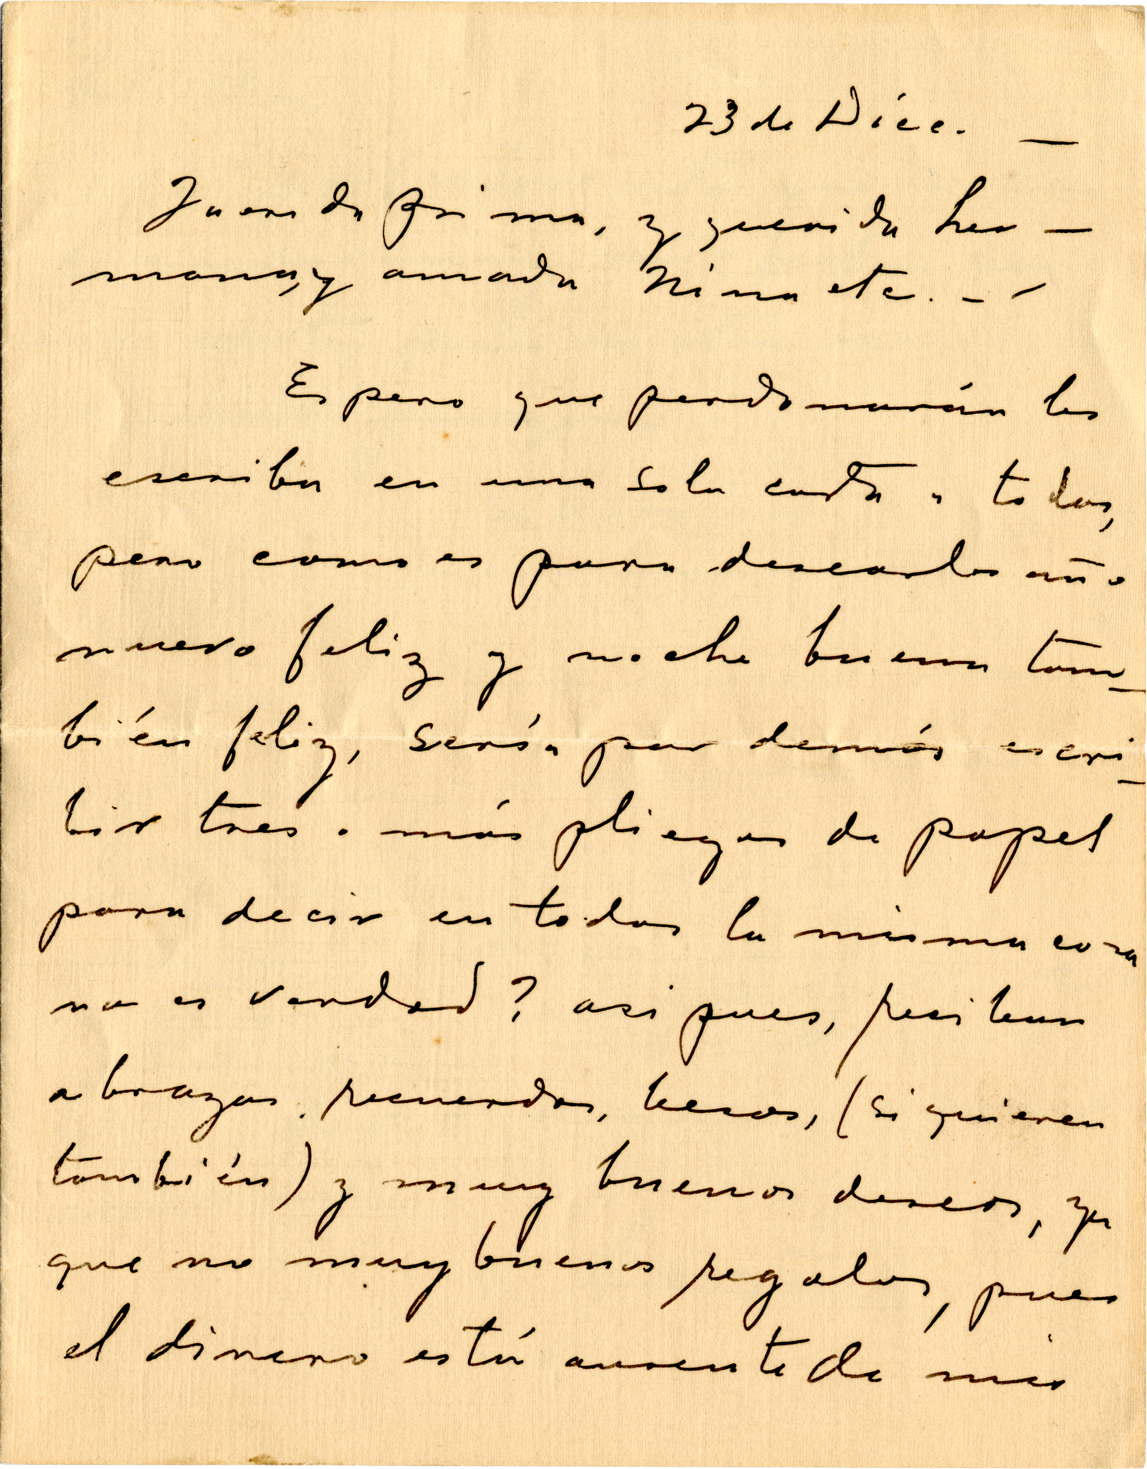 23 de Dice. —
Querida prima, y querida her—
mana, y amada Nina etc. - -
Espero que perdonarán les
escriba en una sola carta a todas,
pero como es para desearles año
nuevo feliz y noche buena tam_
bién feliz, sería por demás escri_
bir tres o más pliegos de papel
para decir en todos la misma cosa
no es verdad? asi pues, reciban
abrazos, recuerdos, besos, (si quieren
también) y muy buenos deseos, ya
que no muy buenos regalos, pues
el dinero está ausente de mis